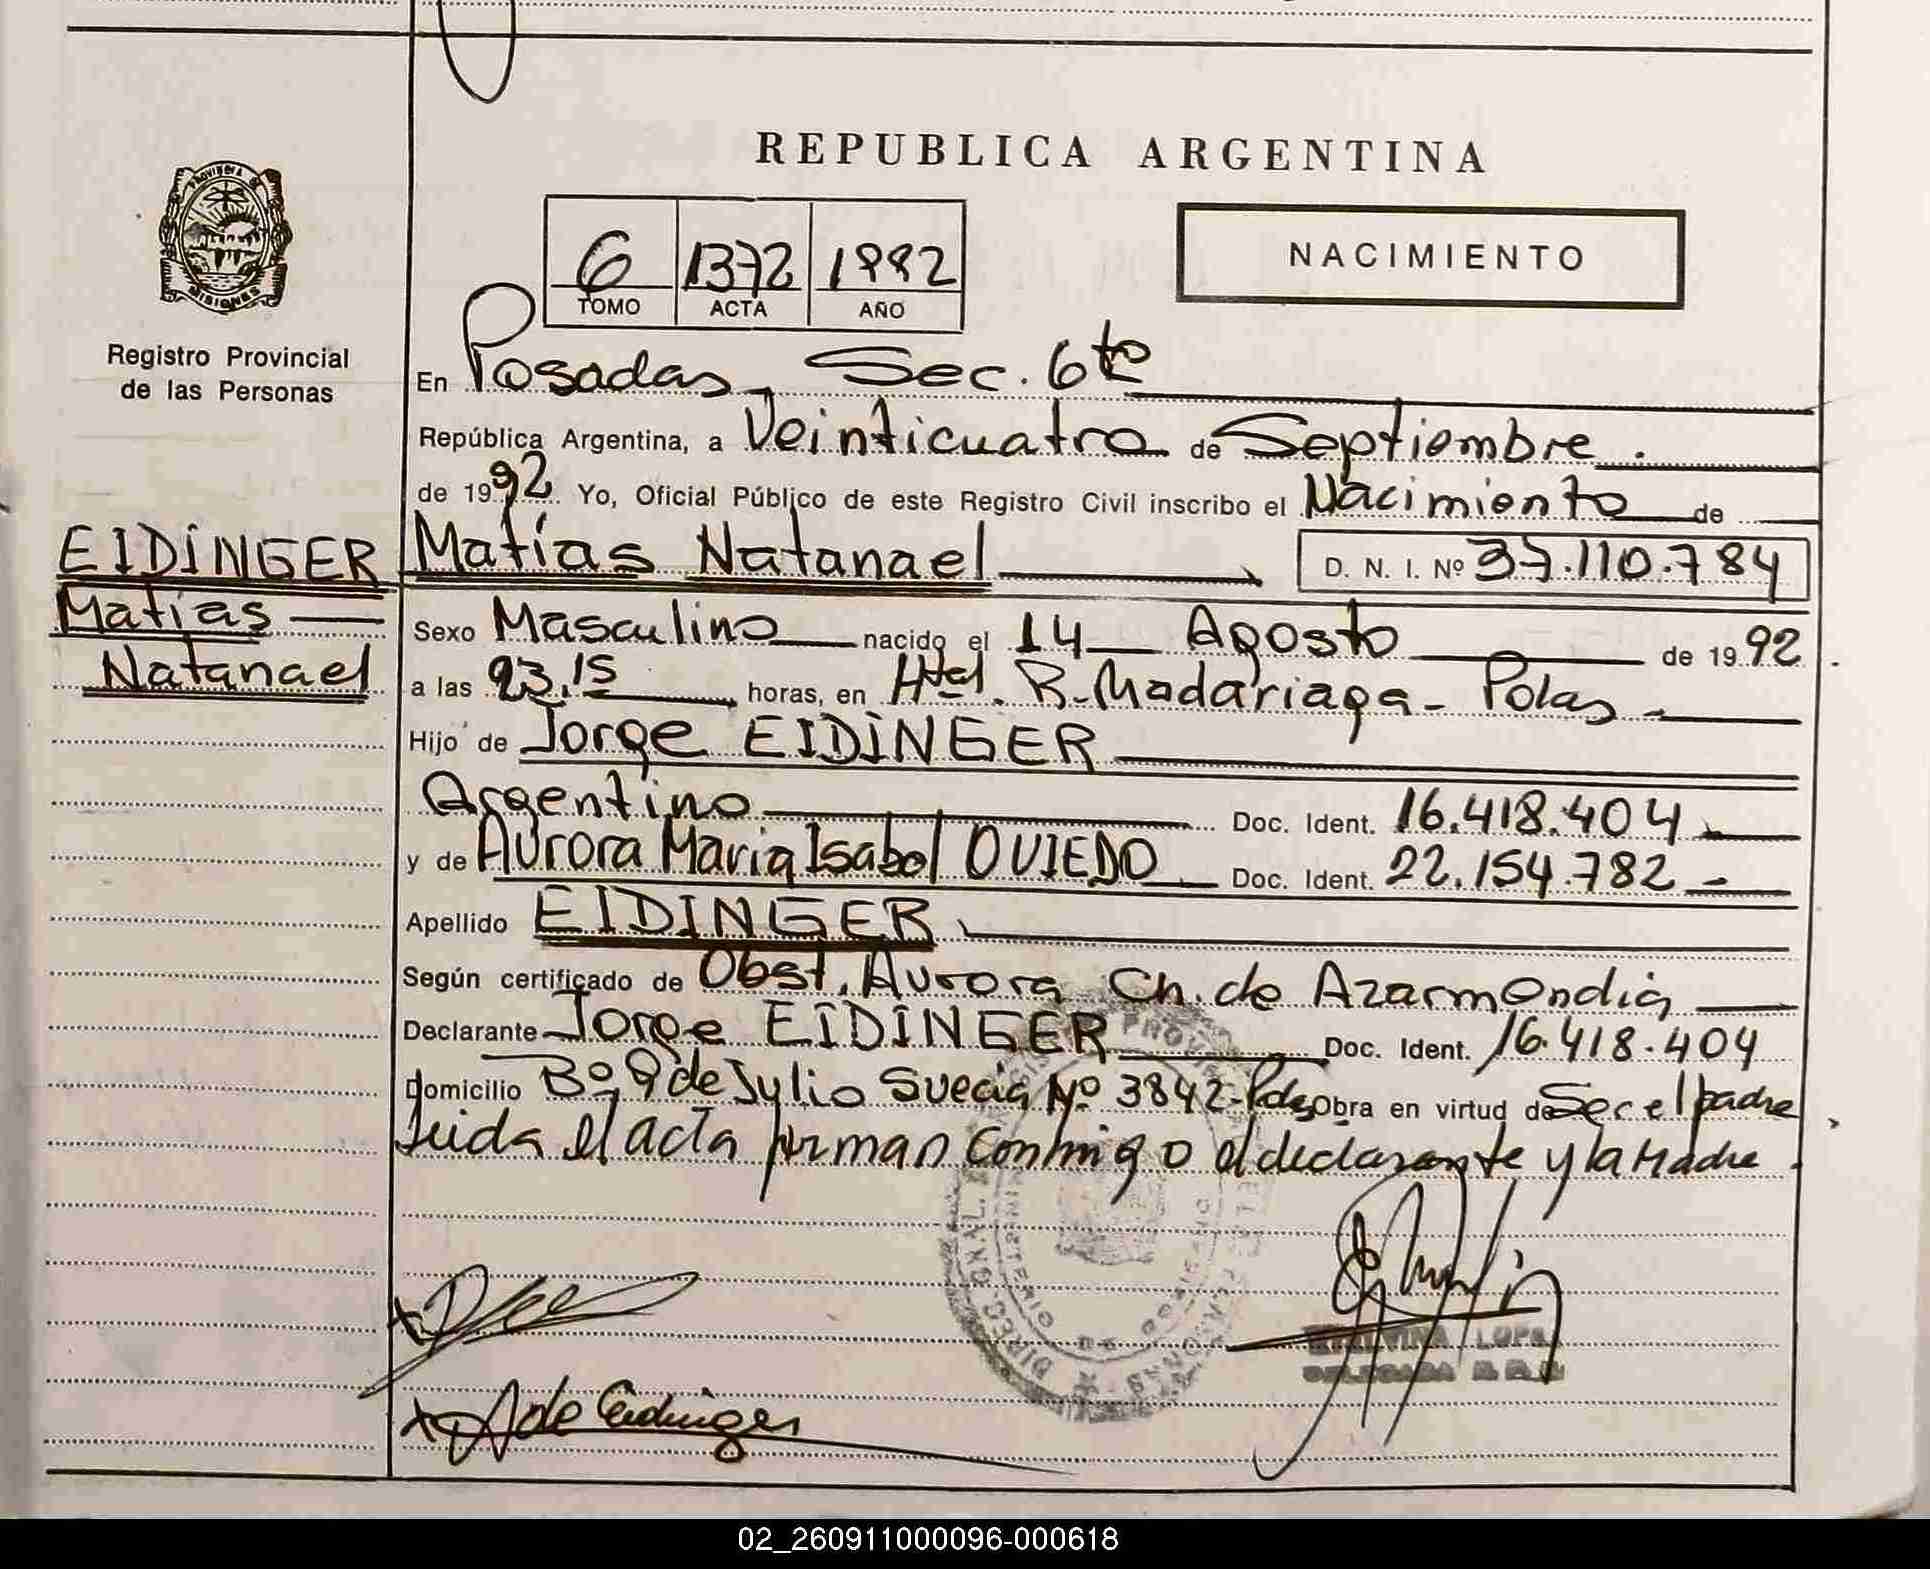 REPUBLICA ARGENTINA
PROVINCIA DE
MISIONES
Registro Provincial
de las Personas
6 1372 1992
TOMO ACTA AÑO
NACIMIENTO
En Posadas, Sec. 6ta
República Argentina, a Veinticuatro de Septiembre.
de 1992 Yo, Oficial Público de este Registro Civil inscribo el Nacimiento de
EIDINGER
Matías
Natanael
Matías Natanael D. N. I. Nº 37.110.784
Sexo Masculino nacido el 14 Agosto de 1992
a las 23.15 horas, en Htal. R. Madariaga - Pdas
Hijo de Jorge EIDINGER
Argentino Doc. Ident. 16.418.404
y de Aurora Maria Isabel OVIEDO Doc. Ident. 22.154.782
Apellido EIDINGER
Según certificado de Obst. Aurora Ch. de Azarmendia
Declarante Jorge EIDINGER Doc. Ident. 16.418.404
Domicilio Bº 9 de Julio Suecia Nº 3842 - Pdas Obra en virtud de Ser el padre
Leida el acta firman conmigo el declarante y la Madre.
A de Eidinger
02_260911000096-000618